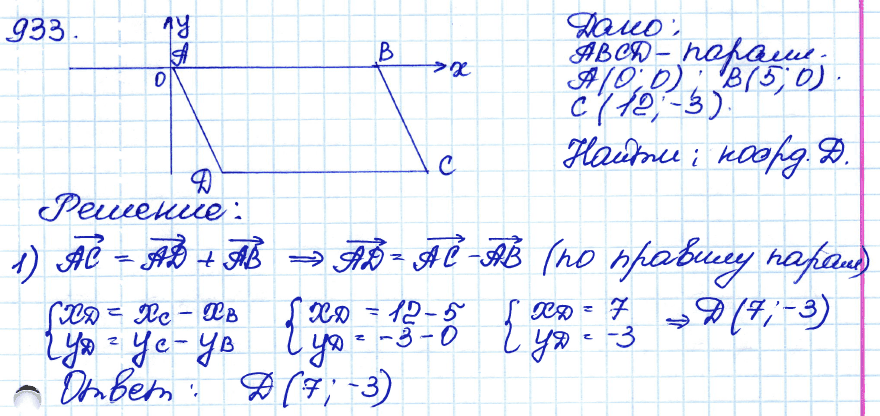 933.
y
A
B
O
x
D
C
Дано:
ABCD – парал.
A(0;0); B(5;0).
C(12;-3).
Найти: коорд. D.
Решение:
1) AC = AD + AB ⇒ AD = AC - AB (по правилу парал)
{ xD = xC - xB { xD = 12-5 { xD = 7 ⇒ D(7;-3)
{ yD = yC - yB { yD = -3-0 { yD = -3
Ответ: D(7;-3)